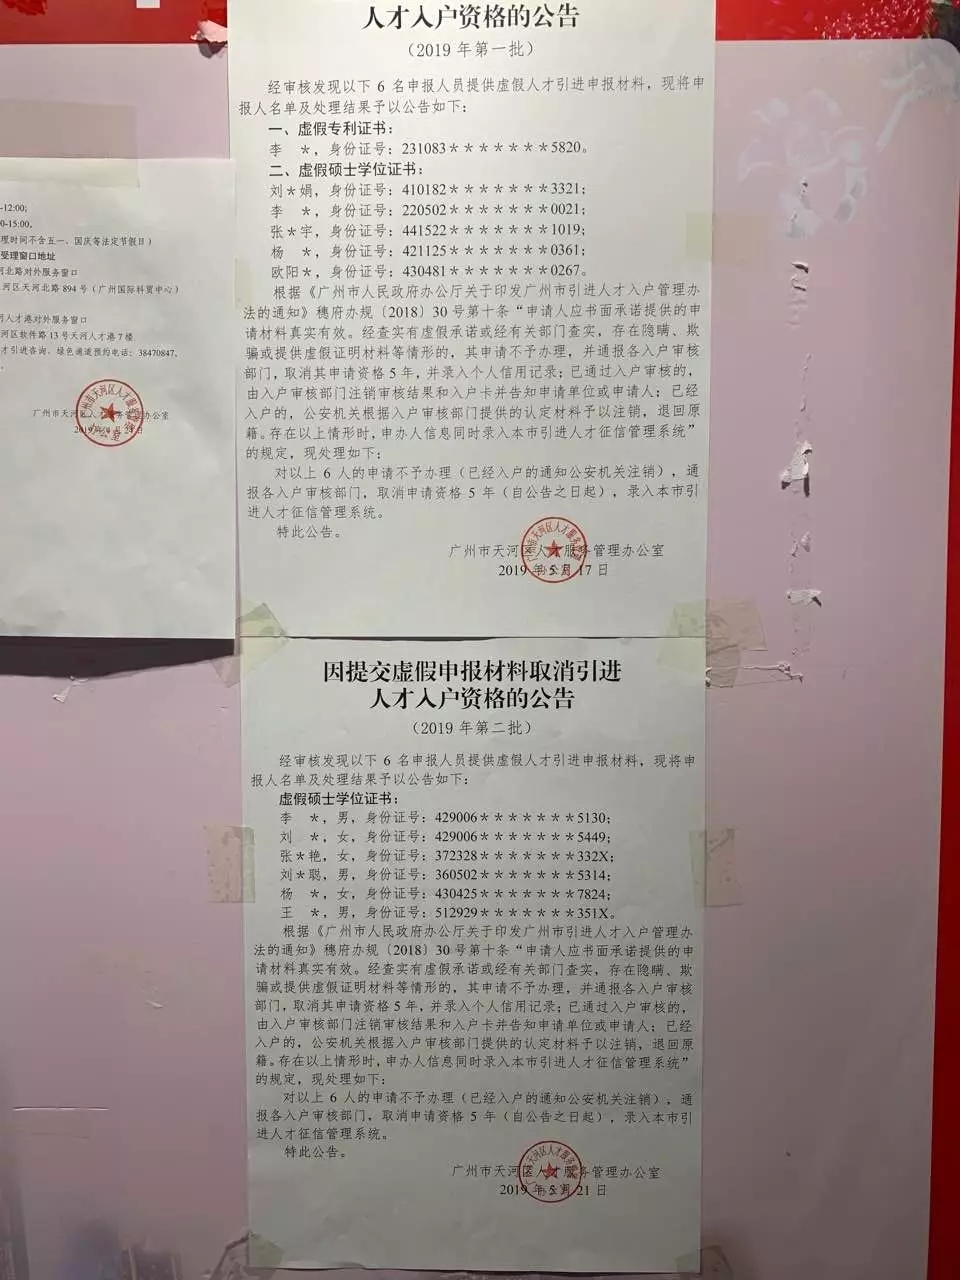 -12:00;
0-15:00。
理时间不含五一、国庆等法定节假日）
受理窗口地址
河北路对外服务窗口
河区天河北路 894 号（广州国际科贸中心）
河人才港对外服务窗口
河区软件路 13 号天河人才港 7 楼
才引进咨询、绿色通道预约电话：38470847,
广州市天河区人才服务管理办公室
人才入户资格的公告
（2019 年第一批）
经审核发现以下 6 名申报人员提供虚假人才引进申报材料，现将申
报人名单及处理结果予以公告如下：
一、虚假专利证书：
李 *，身份证号：231083*******5820。
二、虚假硕士学位证书：
刘*娟，身份证号：410182*******3321；
李 *，身份证号：220502*******0021；
张*宇，身份证号：441522*******1019；
杨 *，身份证号：421125*******0361；
欧阳*，身份证号：430481*******0267。
根据《广州市人民政府办公厅关于印发广州市引进人才入户管理办
法的通知》穗府办规〔2018〕30 号第十条“申请人应书面承诺提供的申
请材料真实有效。经查实有虚假承诺或经有关部门查实，存在隐瞒、欺
骗或提供虚假证明材料等情形的，其申请不予办理，并通报各入户审核
部门，取消其申请资格 5 年，并录入个人信用记录；已通过入户审核的，
由入户审核部门注销审核结果和入户卡并告知申请单位或申请人；已经
入户的，公安机关根据入户审核部门提供的认定材料予以注销，退回原
籍。存在以上情形时，申办人信息同时录入本市引进人才征信管理系统”
的规定，现处理如下：
对以上 6 人的申请不予办理（已经入户的通知公安机关注销），通
报各入户审核部门，取消申请资格 5 年（自公告之日起），录入本市引
进人才征信管理系统。
特此公告。
广州市天河区人才服务管理办公室
2019 年 5 月 17 日
因提交虚假申报材料取消引进
人才入户资格的公告
（2019 年第二批）
经审核发现以下 6 名申报人员提供虚假人才引进申报材料，现将申
报人名单及处理结果予以公告如下：
虚假硕士学位证书：
李 *，男，身份证号：429006*******5130；
刘 *，女，身份证号：429006*******5449；
张*艳，女，身份证号：372328*******332X；
刘*聪，男，身份证号：360502*******5314；
杨 *，女，身份证号：430425*******7824；
王 *，男，身份证号：512929*******351X。
根据《广州市人民政府办公厅关于印发广州市引进人才入户管理办
法的通知》穗府办规〔2018〕30 号第十条“申请人应书面承诺提供的申
请材料真实有效。经查实有虚假承诺或经有关部门查实，存在隐瞒、欺
骗或提供虚假证明材料等情形的，其申请不予办理，并通报各入户审核
部门，取消其申请资格 5 年，并录入个人信用记录；已通过入户审核的，
由入户审核部门注销审核结果和入户卡并告知申请单位或申请人；已经
入户的，公安机关根据入户审核部门提供的认定材料予以注销，退回原
籍。存在以上情形时，申办人信息同时录入本市引进人才征信管理系统”
的规定，现处理如下：
对以上 6 人的申请不予办理（已经入户的通知公安机关注销），通
报各入户审核部门，取消申请资格 5 年（自公告之日起），录入本市引
进人才征信管理系统。
特此公告。
广州市天河区人才服务管理办公室
2019 年 5 月 21 日